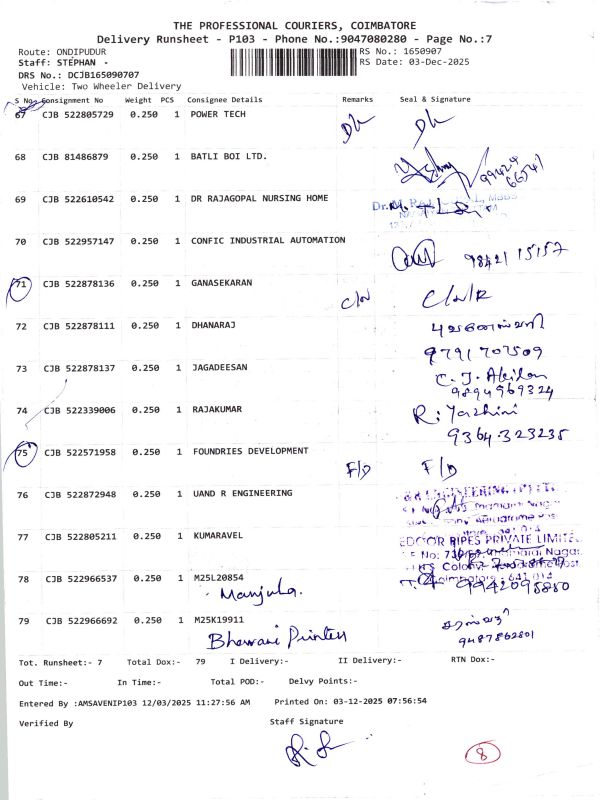 THE PROFESSIONAL COURIERS, COIMBATORE
Delivery Runsheet - P103 - Phone No.:9047080280 - Page No.:7
Route: ONDIPUDUR RS No.: 1650907
Staff: STEPHAN - RS Date: 03-Dec-2025
DRS No.: DCJB165090707
Vehicle: Two Wheeler Delivery
S No. Consignment No Weight PCS Consignee Details Remarks Seal & Signature
67 CJB 522805729 0.250 1 POWER TECH DL DL
68 CJB 81486879 0.250 1 BATLI BOI LTD. 99424
66541
69 CJB 522610542 0.250 1 DR RAJAGOPAL NURSING HOME
70 CJB 522957147 0.250 1 CONFIC INDUSTRIAL AUTOMATION
98421 15157
71 CJB 522878136 0.250 1 GANASEKARAN
72 CJB 522878111 0.250 1 DHANARAJ புவனேஸ்வரி
9791707509
73 CJB 522878137 0.250 1 JAGADEESAN
9894969324
74 CJB 522339006 0.250 1 RAJAKUMAR R. Yazhini
9364323235
75 CJB 522571958 0.250 1 FOUNDRIES DEVELOPMENT
F/D F/D
76 CJB 522872948 0.250 1 UAND R ENGINEERING
77 CJB 522805211 0.250 1 KUMARAVEL PIPES PRIVATE LIMITE
Coimbatore - 641 014
78 CJB 522966537 0.250 1 M25L20854
Manjula.
79 CJB 522966692 0.250 1 M25K19911 சரஸ்வதி
Bhawani Printers 9487862801
Tot. Runsheet:- 7 Total Dox:- 79 I Delivery:- II Delivery:- RTN Dox:-
Out Time:- In Time:- Total POD:- Delvy Points:-
Entered By :AMSAVENIP103 12/03/2025 11:27:56 AM Printed On: 03-12-2025 07:56:54
Verified By Staff Signature
8